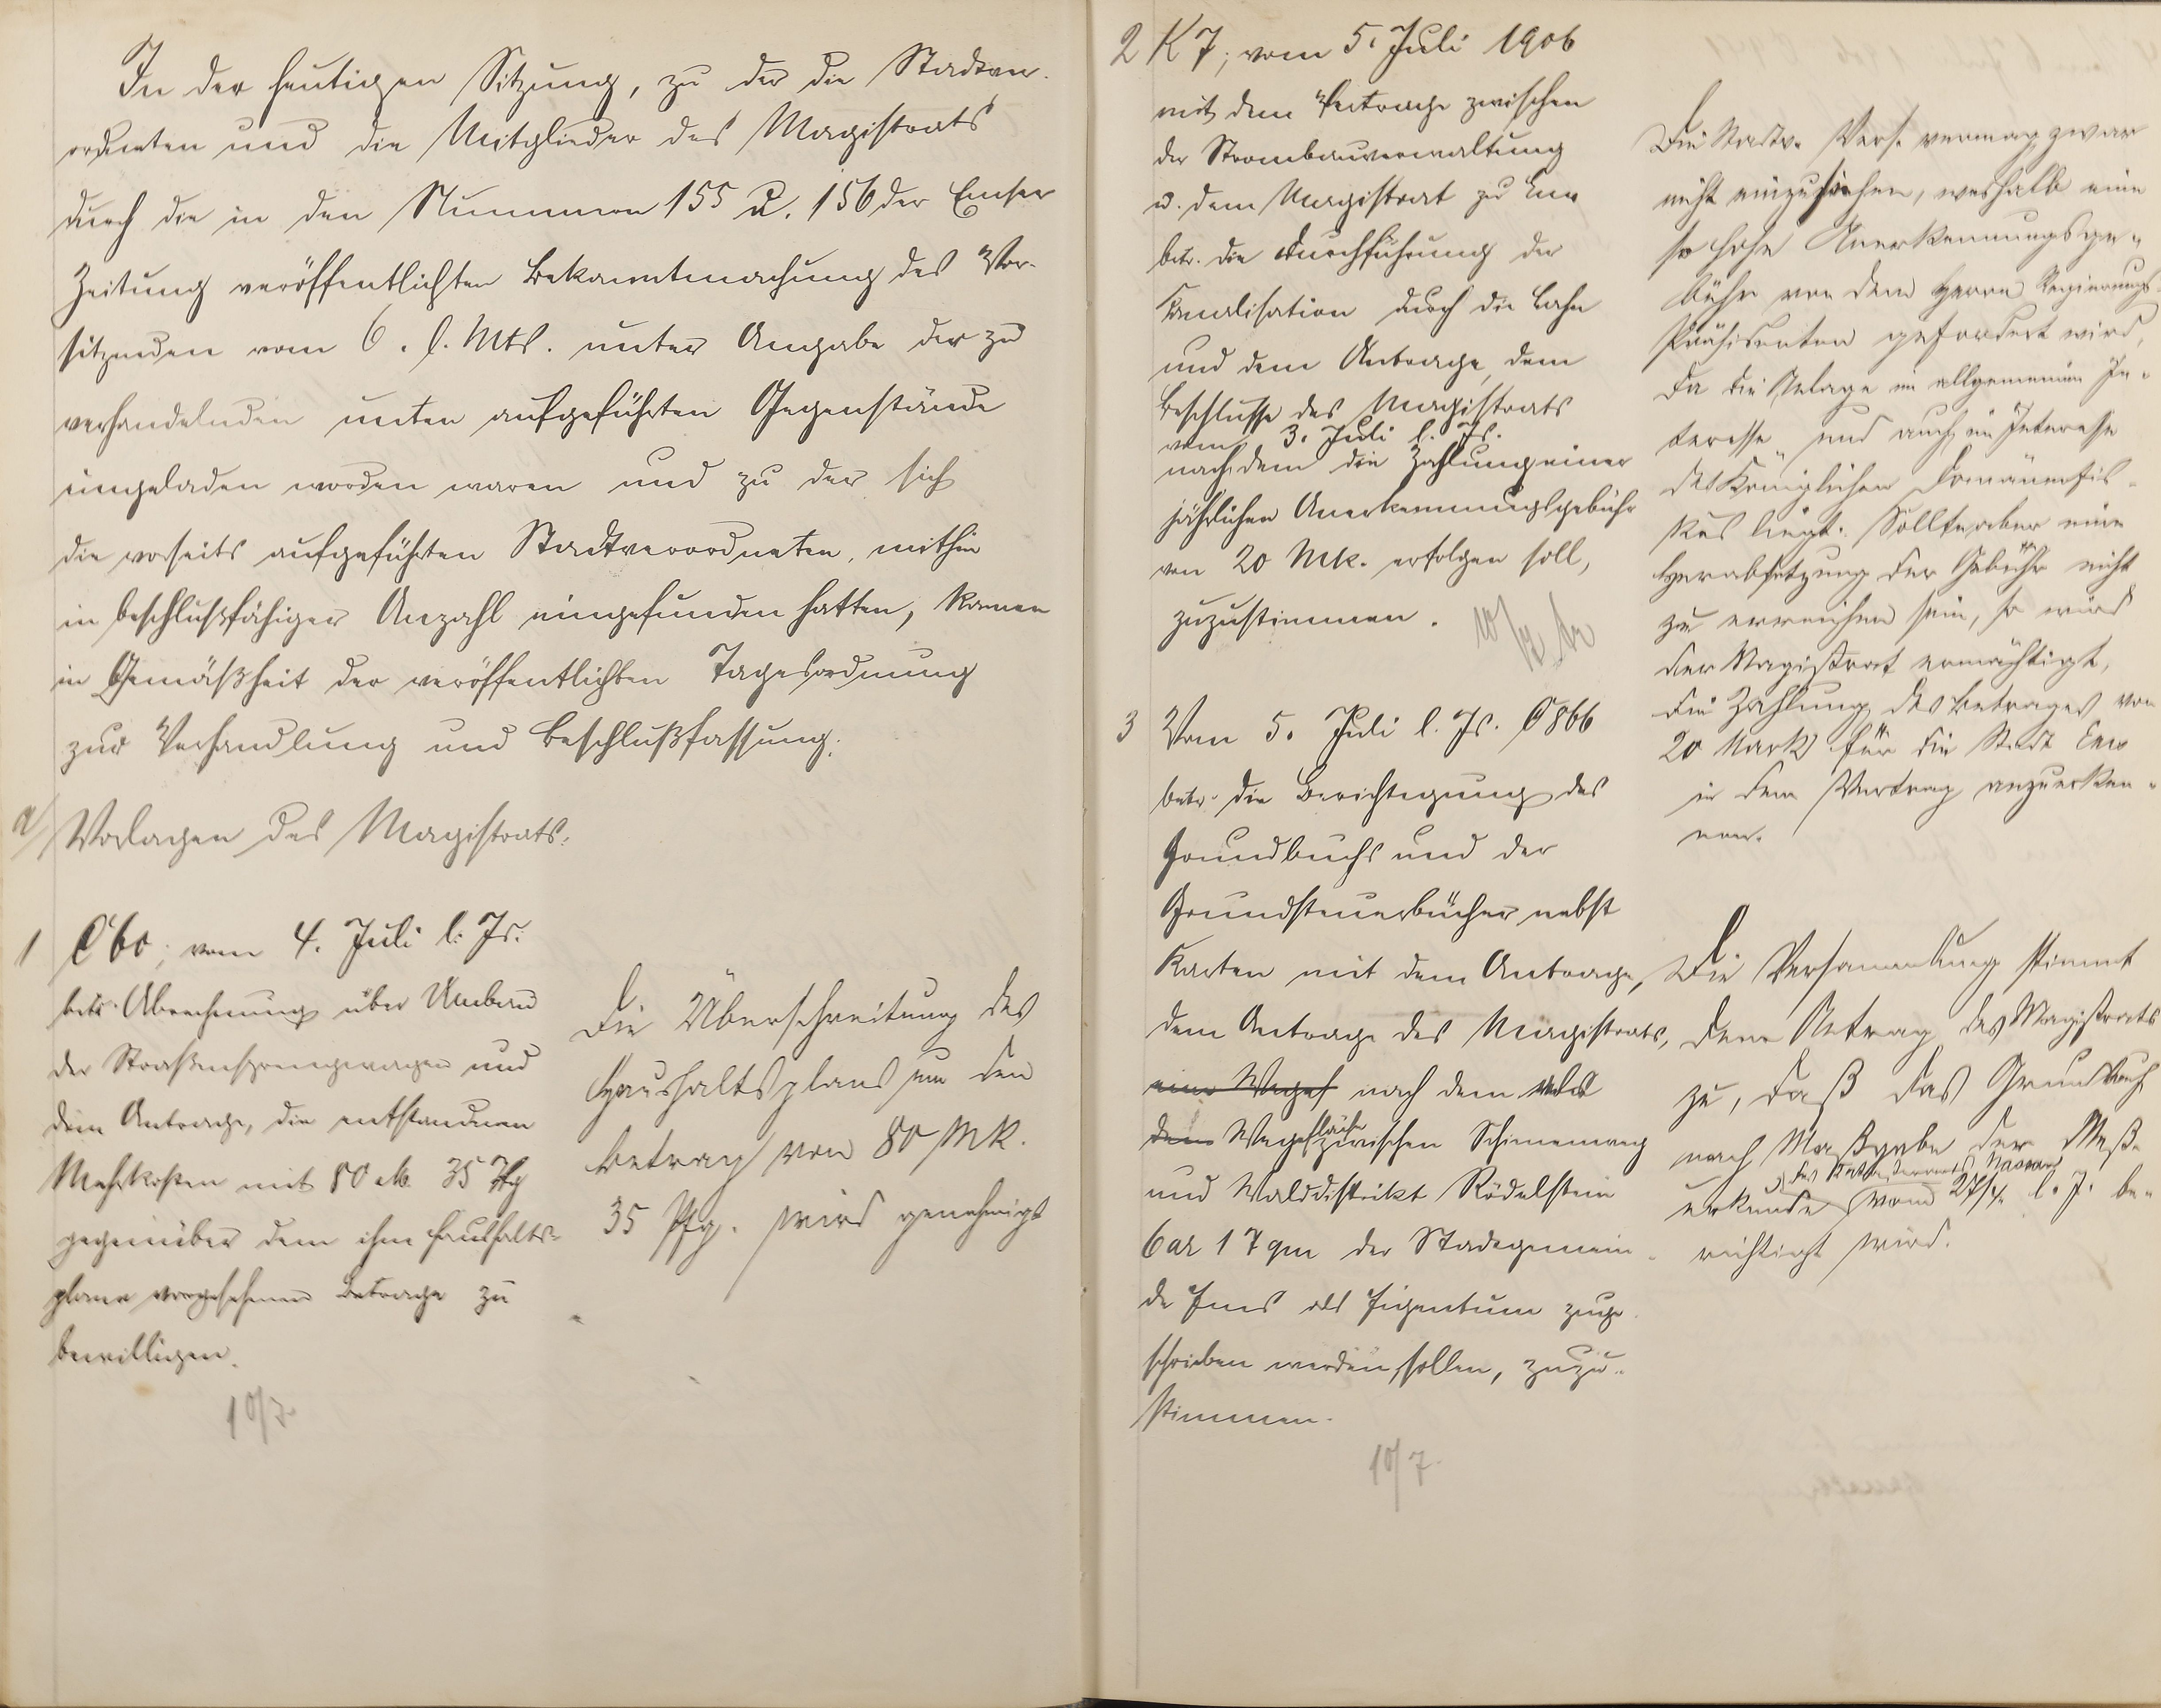 In der heutigen Sitzung, zu der die Stadtver-
ordneten und die Mitglieder des Magistrats
durch die in den Nummern 155 u. 156 der Emser
Zeitung veröffentlichten Bekanntmachung des Vor-
sitzenden vom 6. l. Mts. unter Angabe der zu
verhandelnden unten aufgeführten Gegenstände
eingeladen worden waren und zu der sich
die vorseits aufgeführten Stadtverordneten, mithin
in beschlußfähiger Anzahl eingefunden hatten, kamen
in Gemäßheit der veröffentlichten Tagesordnung
zur Verhandlung und Beschlußfassung:
a/ Vorlagen des Magistrats:
1 C 60; vom 4. Juli l. Js.
betr. Abrechnung über Umbau
der Straßensprengwagen und
dem Antrage, die entstandenen
Mehrkosten mit 80 M 35 Pfg
gegenüber dem im Haushalts-
plane vorgesehenen Betrage zu
bewilligen.
10/7.
Die Überschreitung des
Haushaltsplans um den
Betrag von 80 MK.
35 Pfg. wird genehmigt
2 K 7; vom 5. Juli 1906
mit dem Vertrage zwischen
der Strombauverwaltung
u. dem Magistrat zu Ems
betr. die Durchführung der
Kanalisation durch die Lahn
und dem Antrage, dem
Beschlusse des Magistrats
vom 3. Juli l. Js.
nachdem die Zahlung einer
jährlichen Anerkennungsgebühr
von 20 Mk. erfolgen soll,
zuzustimmen.
Die Stadtv. Vers. vermag zwar
nicht einzusehen, weshalb eine
so hohe Anerkennungsge-
bühr von dem Herrn Regierungs-
Präsidenten gefordert wird,
da die Anlage im allgemeinen In-
teresse und auch im Interesse
des Königlichen Domänenfis-
kus liegt. Sollte aber eine
Herabsetzung der Gebühr nicht
zu erreichen sein, so wird
der Magistrat ermächtigt,
die Zahlung des Betrages von
20 Mark für die Stadt Ems
in dem Vertrag anzuerken-
nen.
3 Vom 5. Juli l. Js. C 866
betr. die Berichtigung des
Grundbuchs und der
Grundsteuerbücher nebst
Karten mit dem Antrage,
dem Antrage des Magistrats,
eine Wegef nach dem
dem Wegefläche zwischen Schimenweg
und Walddistrikt Rödelstein
6 ar 17 qm der Stadtgemein-
de Ems als Eigentum zuge-
schrieben werden sollen, zuzu-
stimmen.
10/7.
Die Versammlung stimmt
dem Antrag des Magistrats
zu, daß das Grundbuch
nach Maßgabe der Meß-
des Katasteramts Nassau
urkunde vom 27/4. l. J. be-
richtigt wird.